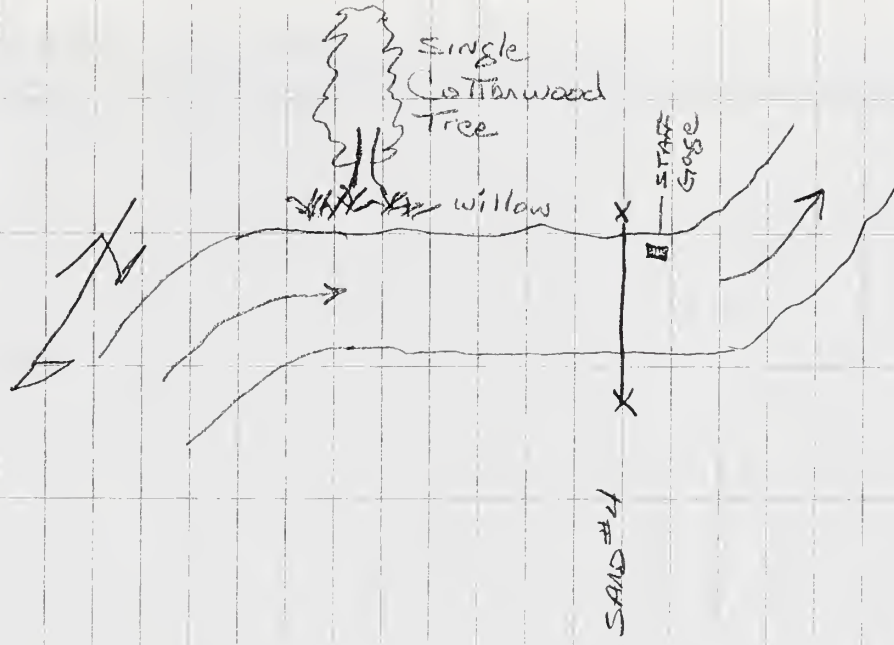 Single
Cottonwood
Tree
willow
STAFF
Gage
N
SAND #4